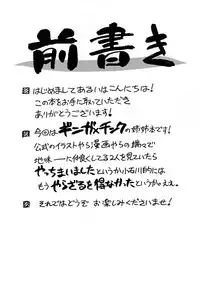 前書き
はじめましてあるいはこんにちは!
この本をお手に取っていただき
ありがとうございます!
今回はギンガ×チンクの姉妹本です!
公式のイラストやら漫画やらの端々で
地味ーに仲良くしてる2人を見ていたら
やっちまいましたというか小石川的には
もうやらざるを得なかったというかぇぇ。
それではどうぞ お楽しみくださいませ!